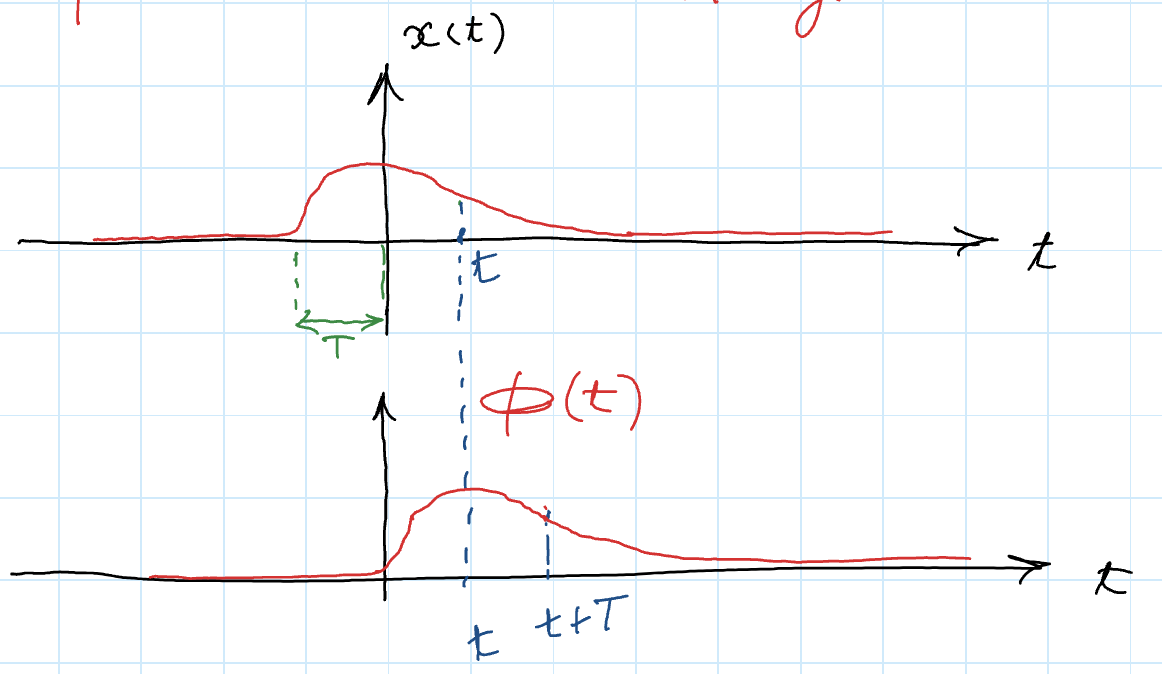 x(t)
t
t
T
ϕ(t)
t
t+T
t